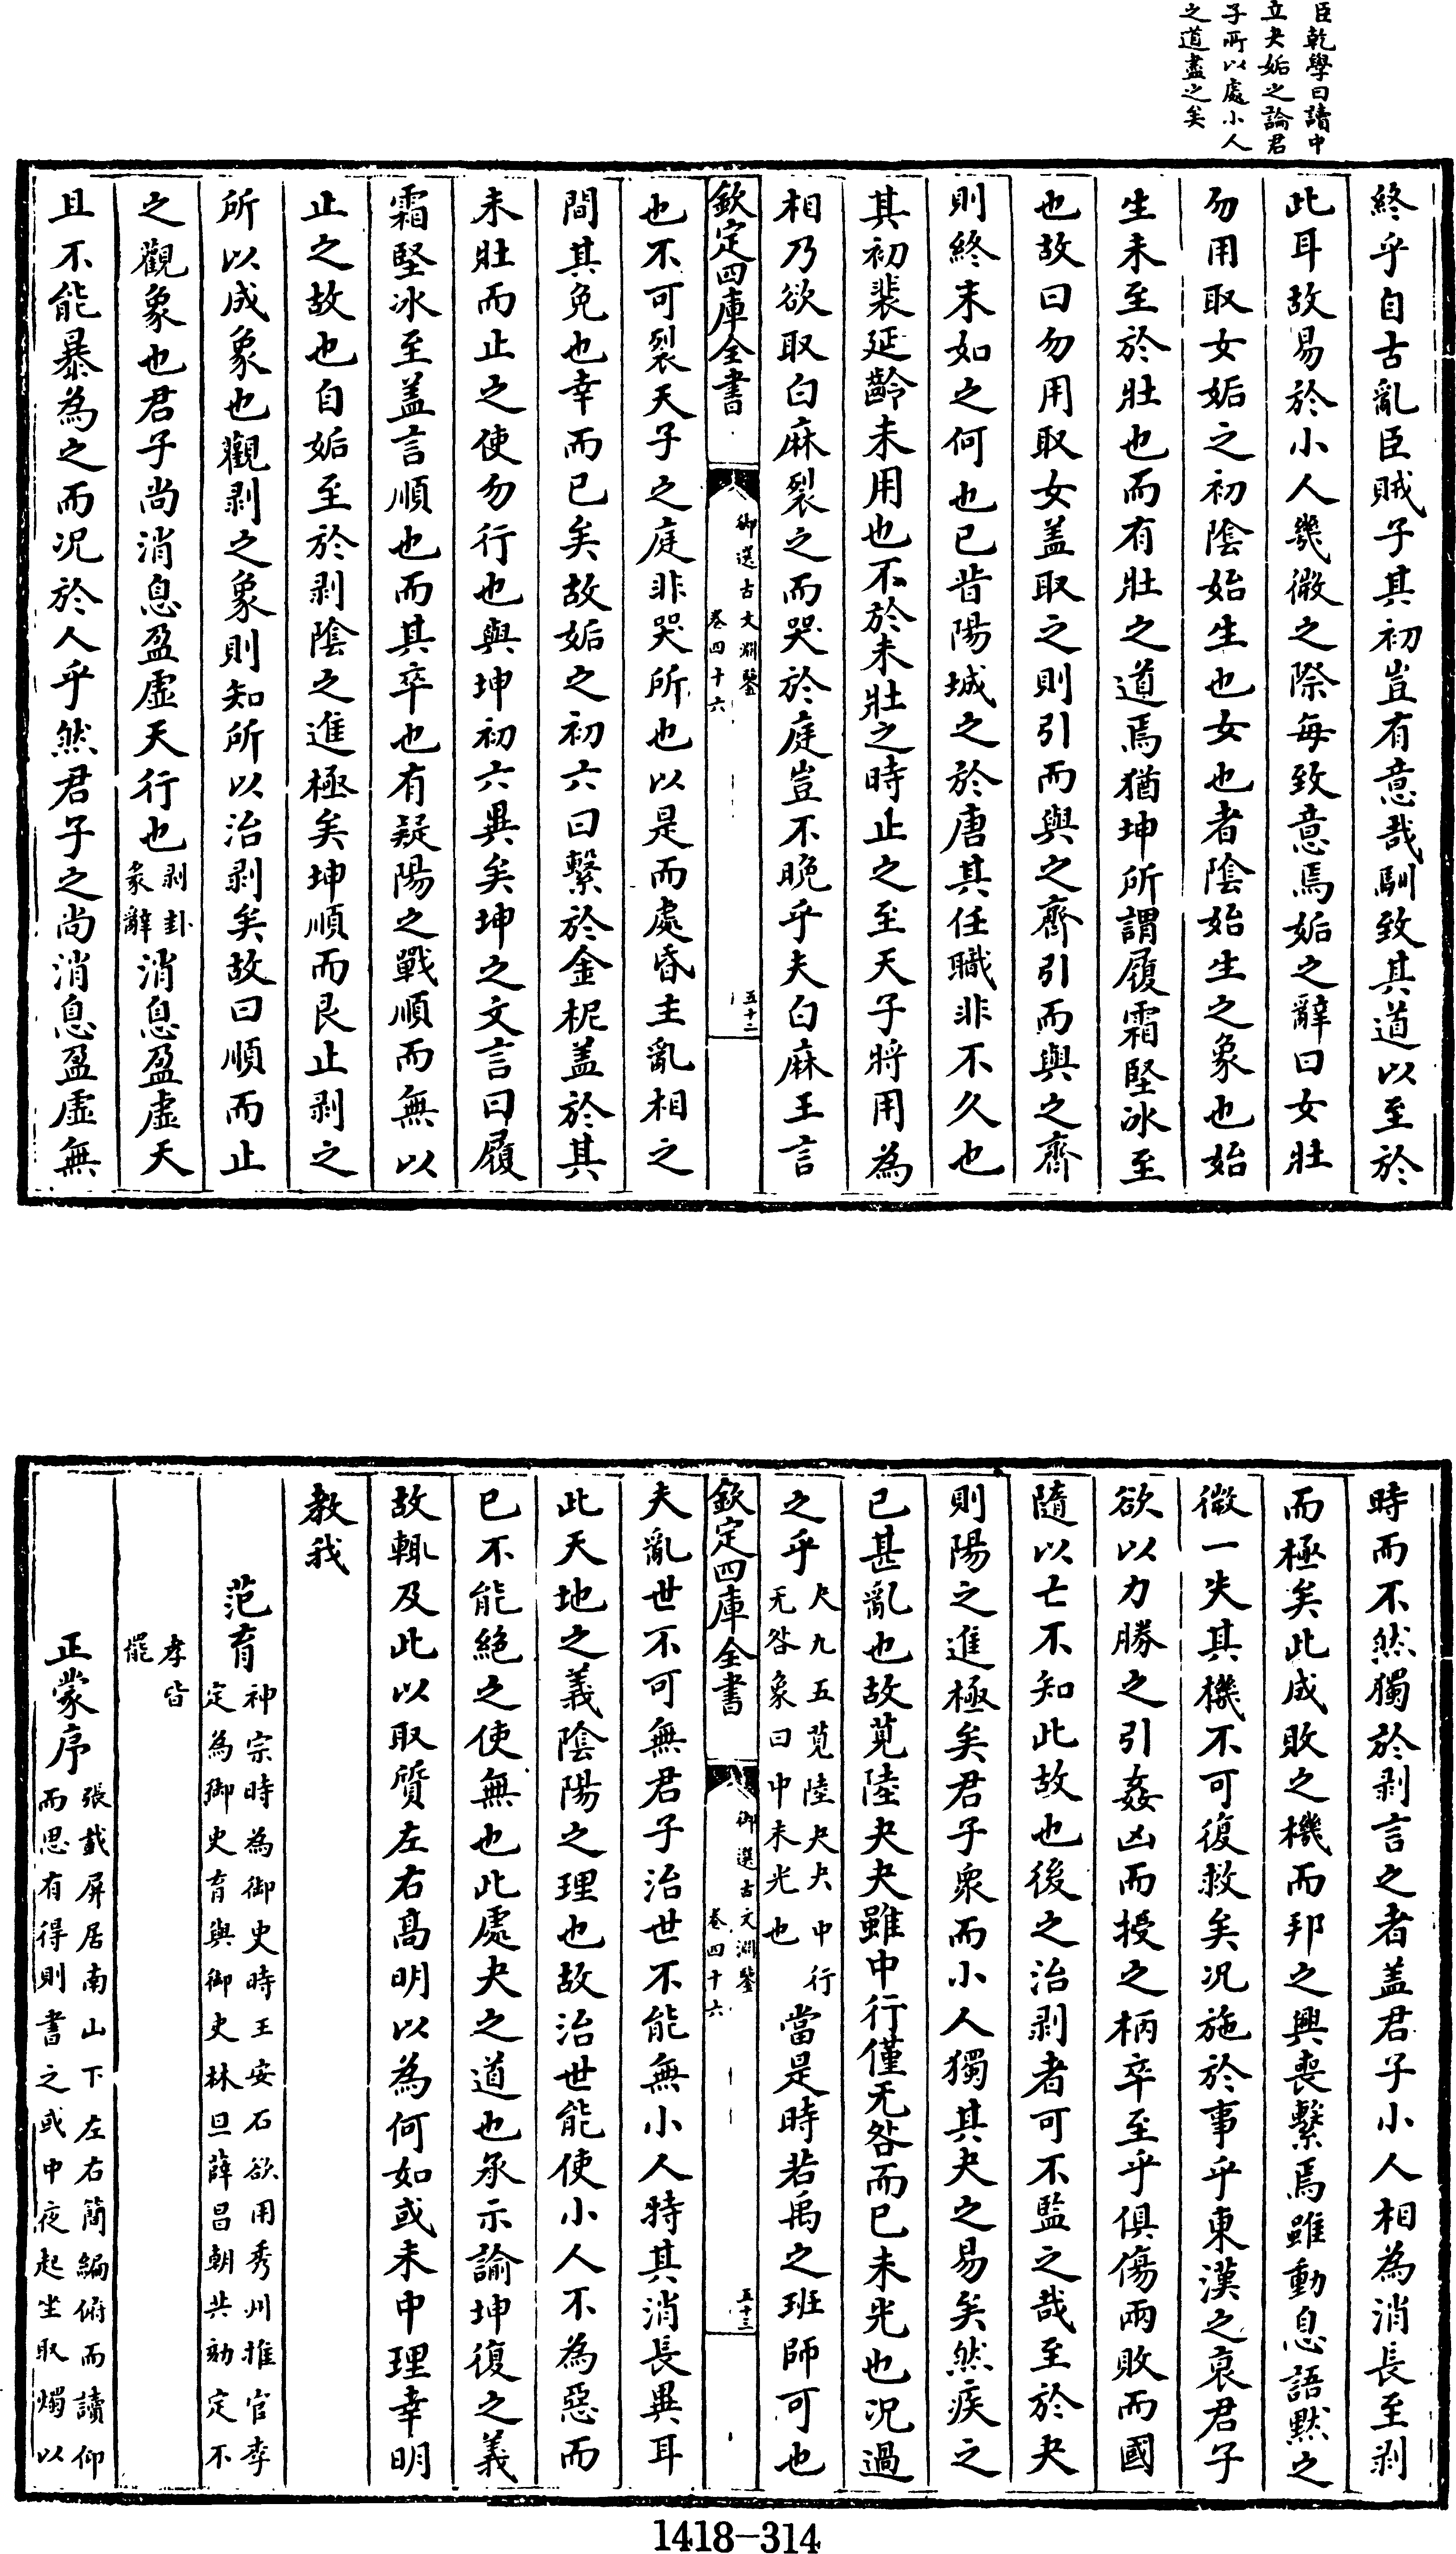 臣乾學曰讀中
立夬姤之論君
子所以處小人
之道盡之矣
終乎自古亂臣賊子其初豈有意哉馴致其道以至於
此耳故易於小人幾微之際每致意焉姤之辭曰女壯
勿用取女姤之初陰始生也女也者陰始生之象也始
生未至於壯也而有壯之道焉猶坤所謂履霜堅冰至
也故曰勿用取女盖取之則引而與之齊引而與之齊
則終末如之何也已昔陽城之於唐其任職非不久也
其初裴延齡未用也不於未壯之時止之至天子將用為
相乃欲取白麻裂之而哭於庭豈不晚乎夫白麻王言
欽定四庫全書
御選古文淵鑒
卷四十六
五十二
也不可裂天子之庭非哭所也以是而處昏主亂相之
間其免也幸而已矣故姤之初六曰繫於金柅盖於其
未壯而止之使勿行也與坤初六異矣坤之文言曰履
霜堅冰至盖言順也而其卒也有疑陽之戰順而無以
止之故也自姤至於剥陰之進極矣坤順而艮止剥之
所以成象也觀剥之象則知所以治剥矣故曰順而止
之觀象也君子尚消息盈虚天行也
剥卦
彖辭
消息盈虚天
且不能暴為之而况於人乎然君子之尚消息盈虚無
時而不然獨於剥言之者盖君子小人相為消長至剥
而極矣此成敗之機而邦之興喪繫焉雖動息語黙之
微一失其機不可復救矣况施於事乎東漢之衰君子
欲以力勝之引姦凶而授之柄卒至乎俱傷兩敗而國
隨以亡不知此故也後之治剥者可不監之哉至於夬
則陽之進極矣君子衆而小人獨其夬之易矣然疾之
已甚亂也故莧陸夬夬雖中行僅无咎而已未光也况過
之乎
夬九五莧陸夬夬中行
无咎象曰中未光也
當是時若禹之班師可也
欽定四庫全書
御選古文淵鑒
卷四十六
五十三
夫亂世不可無君子治世不能無小人特其消長異耳
此天地之義陰陽之理也故治世能使小人不為惡而
已不能絶之使無也此處夬之道也承示諭坤復之義
故輒及此以取質左右髙明以為何如或未中理幸明
教我
范育
神宗時為御史時王安石欲用秀州推官李
定為御史育與御史林旦薛昌朝共劾定不
孝皆
罷
正蒙序
張載屏居南山下左右簡編俯而讀仰
而思有得則書之或中夜起坐取燭以
1418-314